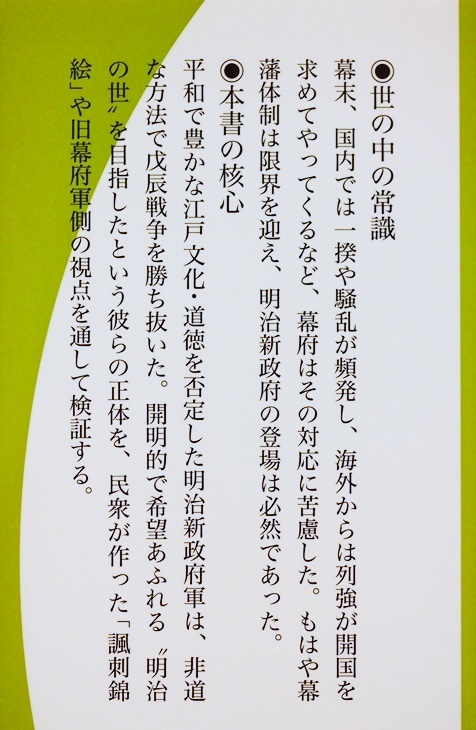 ◉世の中の常識
幕末、国内では一揆や騒乱が頻発し、海外からは列強が開国を
求めてやってくるなど、幕府はその対応に苦慮した。もはや幕
藩体制は限界を迎え、明治新政府の登場は必然であった。
◉本書の核心
平和で豊かな江戸文化・道徳を否定した明治新政府軍は、非道
な方法で戊辰戦争を勝ち抜いた。開明的で希望あふれる〝明治
の世〟を目指したという彼らの正体を、民衆が作った「諷刺錦
絵」や旧幕府軍側の視点を通して検証する。